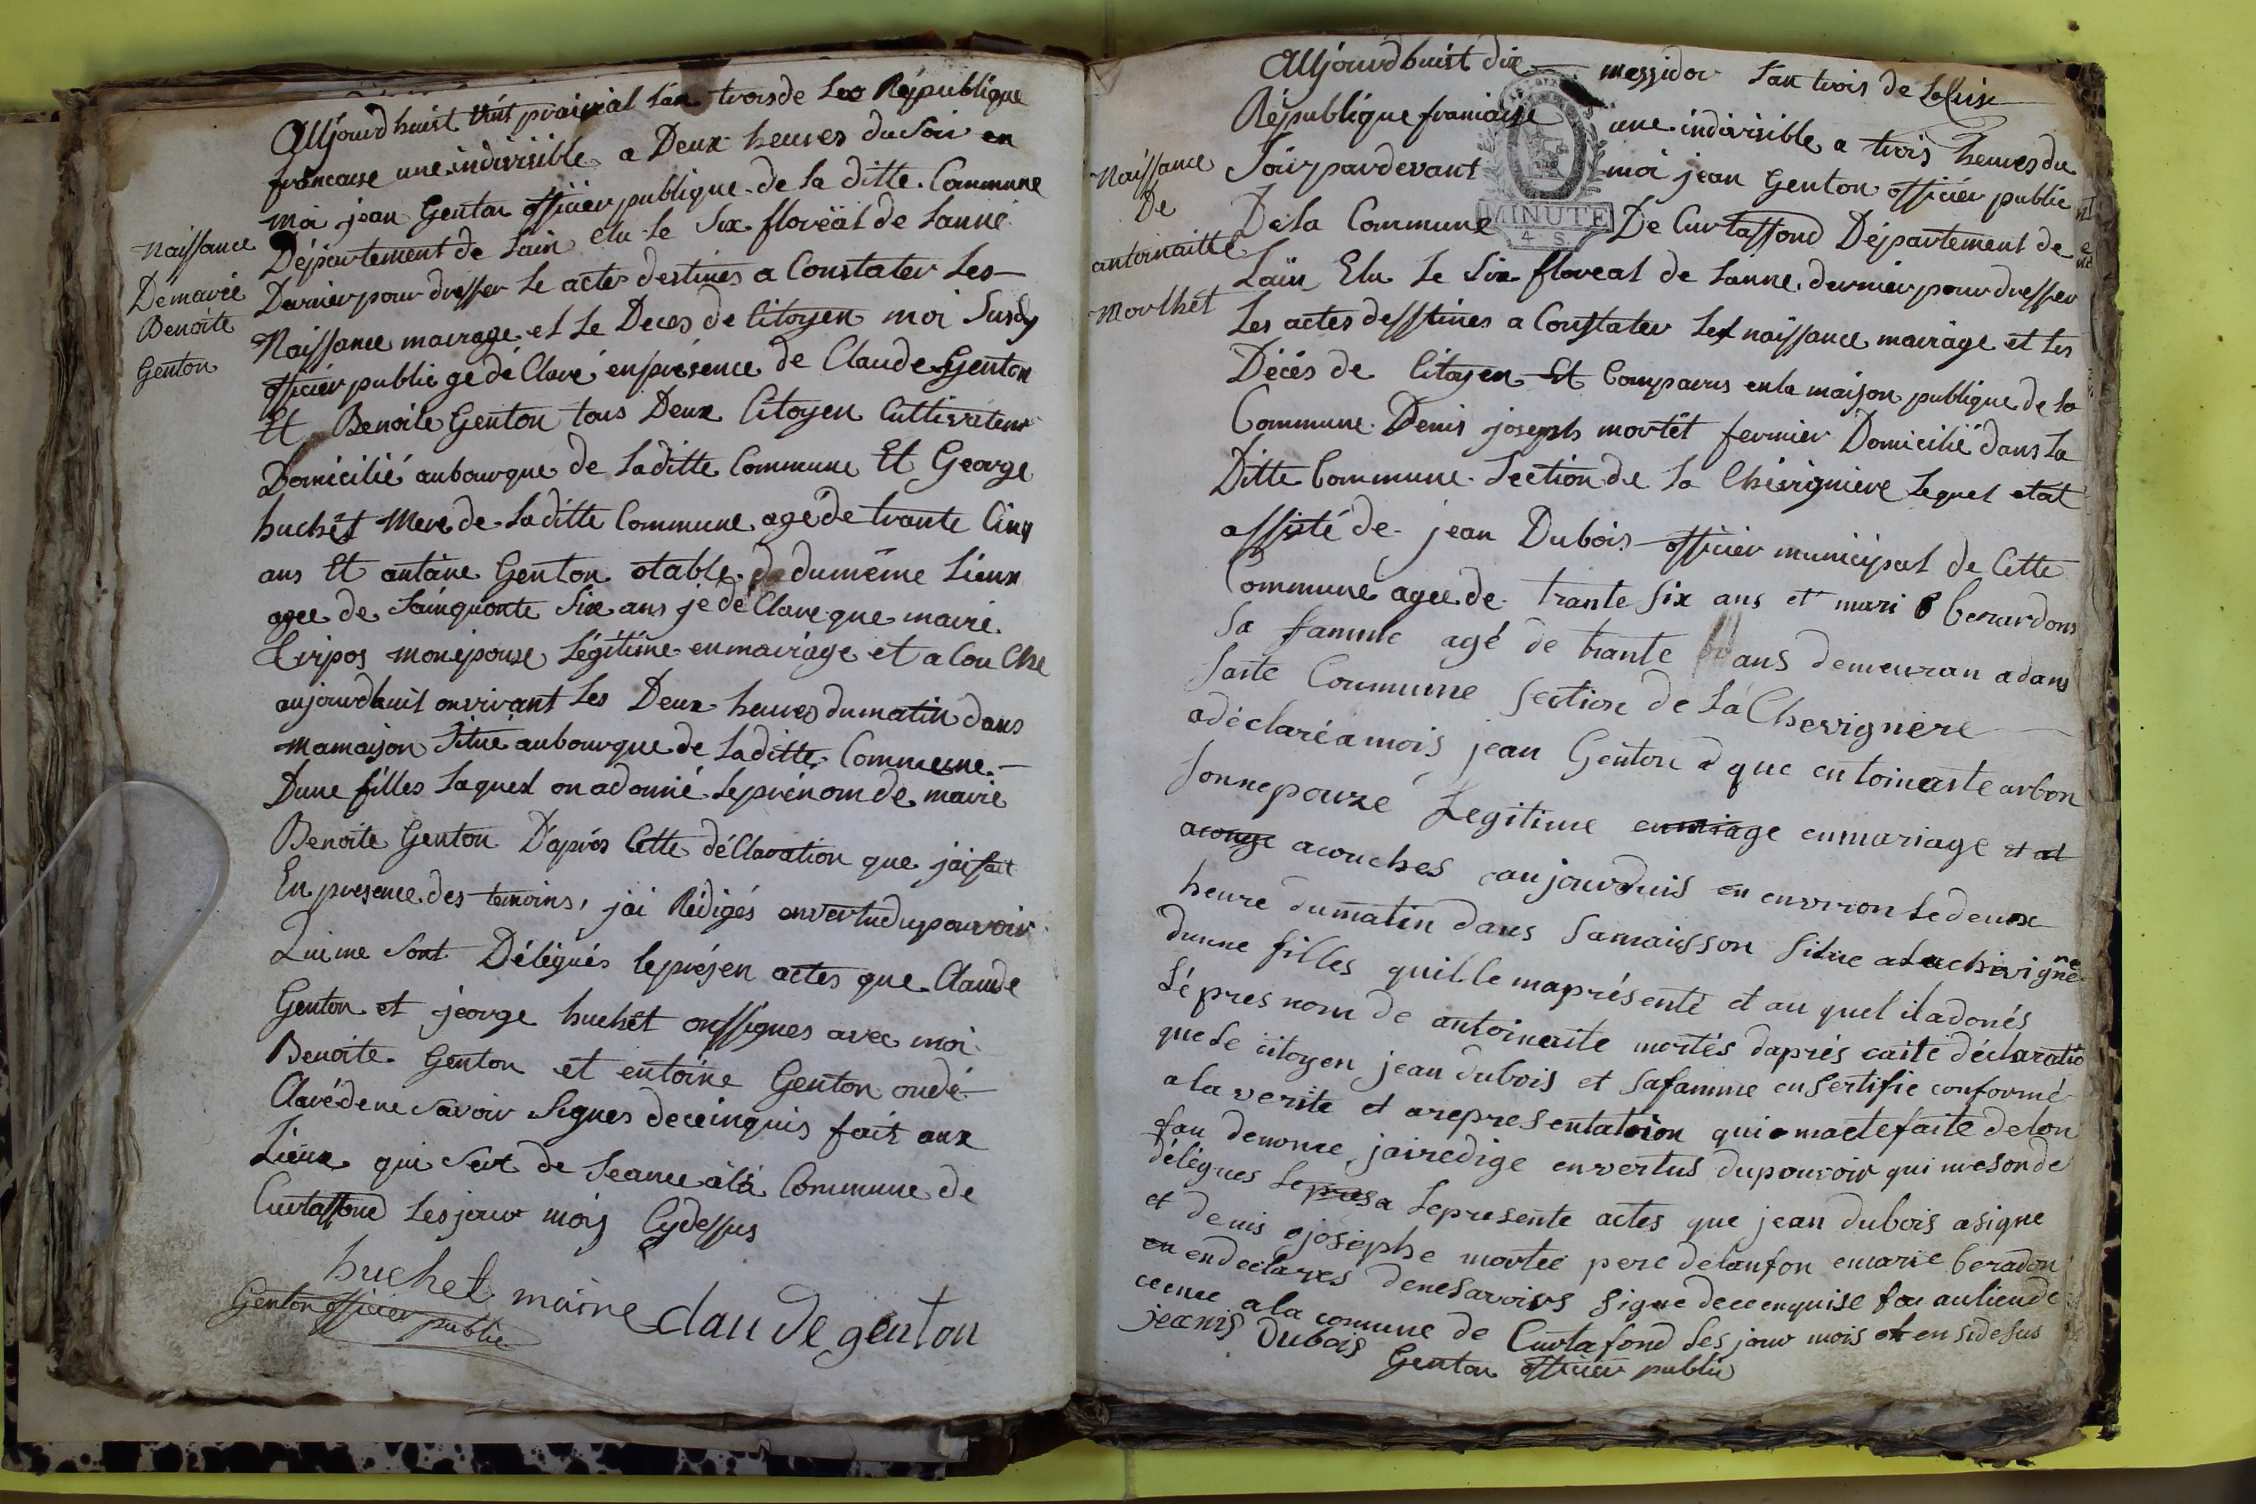 Aujourdhuit vint prairial lan trois de la République
francaise une indivisible a Deux heures du Soir en
moi jean Genton officier publique de la ditte Commune
Département de Lain elu le Six floréal de lanné
Dernier pour dresser le actes destines a Constater les
Naissance mairage et le Deces de Citoyen moi Susdy
officier public gedéClaré enprésence de Claude Genton
Et Benoite Genton tous Deux Citoyen Cultivateur
Domicilié aubourque de laditte Commune Et George
huchet Mere de laditte Commune agéde trante Cinq
ans Et antoine Genton otable dumême Lieux
agee de Sainquonte Six ans je déClare que mairie
monépouse légitime enmairage et a Couche
aujourdhuit onvirant les Deux heures dumatin dans
mamaison Situé aubourque de laditte Commune
Dune filles laquel on adonné leprénom de mairie
Benoite Genton D'après Cette déClaration que jaifait
En presence des temoins, jai Rédigés envertudupouvoir
Quime Sont Délégués leprésen actes que Claude
Genton et jeorge huchet onssignes avec moi
Benoite Genton et entoine Genton ondé
Clarédene Savoir Signes deceinquis fait aux
Lieux qui Sert de Seance àlá Commune de
Curtaffond les jour mois Cydessus
huchet maire
Claude genton
Genton officier public
Naissance
Demairie
Benoite
Genton
Naissance
De
antoinaitte
Morthet
MINUTE
4 S.
Aujourdhuit dix messidor Lan trois de
République francaise une indivisible a trois heures du
Soir pardevant moi jean Genton officier public
De la Commune De Curtaffond Département de
Lain Elu le Six floreal de lanne dernier pour dresser
Les actes desstines a Constater les naissance mairage et les
Décés de Citoyen Et Comparus enla maison publique de la
Commune Denis joseph mortêt fermier Domicilié dans la
Ditte Commune Section de la Chevigniere lequel etat
assisté de jean Dubois officier municipal de Cette
Commune agee de trante six ans et mari berardons
Sa famme agé de trante ans demeuran adans
Saite Commune Section de La Chevignere
adéclaréamois jean Genton que entoinaite arbon
Sonnepouzé Legitime enmiage enmariage et at
aconge acouches aujourduis en environ ledeuxe
heure dumatin dans Samaisson Situe alachivigne
dunne filles quille maprésenté et au quel iladonés
Lé pres nom de antoinaite mortés daprés caite déclaratio
quele citoyen jean dubois et Safamme ensertifie conformé
ala verite et arepresentation qui mactefaite delon
fan denomé, jairedige envertus dupouvoir qui mesonde
délégues Lepresa Lepresente actes que jean dubois asigne
et denis ejosephe mortee pere delanfon emarie beradon
en endeclares denesavoirs Signe deceenquise fai aulieude
ceence ala comune de Curtafond Les jour mois et en sidesus
jeanis Dubois
Genton officier public